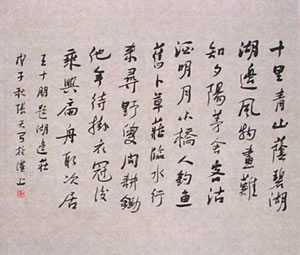 十里青山蔭碧湖
湖邊風物畫難
如夕陽茅舍客沽
酒明月小橋人釣魚
舊卜草莊臨水竹
來尋野叟問耕鋤
他年待掛衣冠後
乘興扁舟取次居
王十朋題湖邊莊
戊子秋張天写於漢上